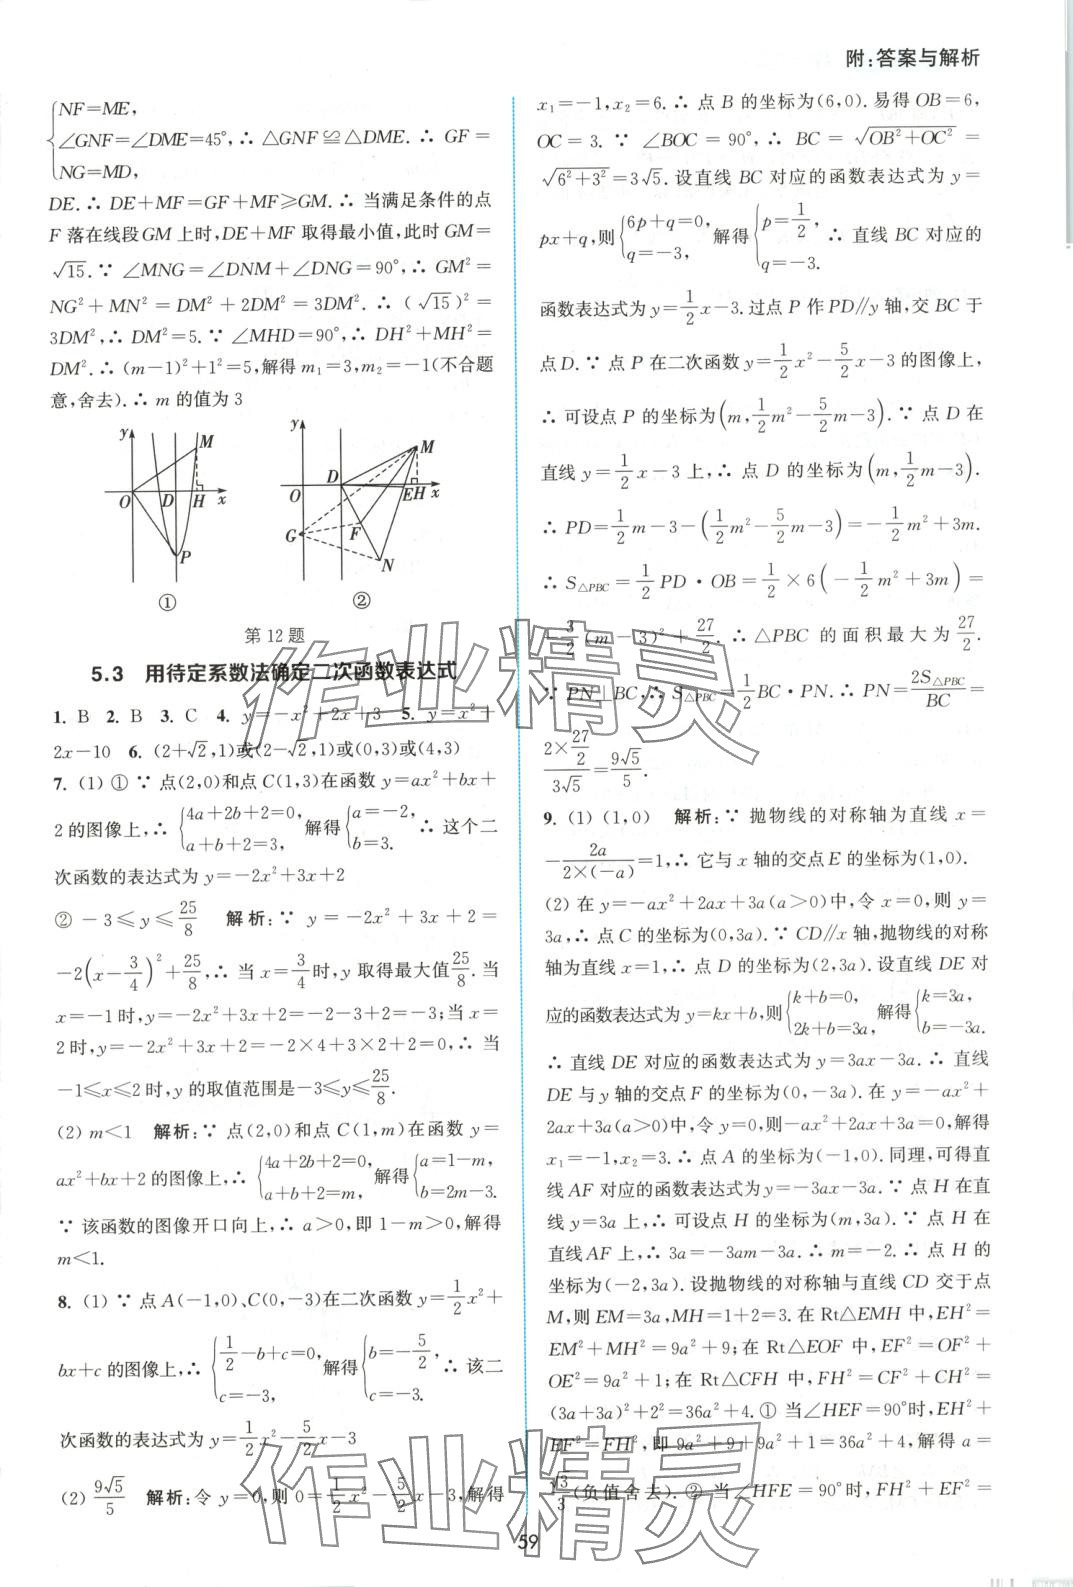 附:答案与解析
{NF=ME,
∠GNF=∠DME=45°,∴ △GNF≌△DME.∴ GF=
NG=MD,
DE.∴ DE+MF=GF+MF≥GM.∴ 当满足条件的点
F 落在线段GM 上时,DE+MF 取得最小值,此时 GM=
√15.∵ ∠MNG=∠DNM+∠DNG=90°,∴ GM²=
NG²+MN²=DM²+2DM²=3DM².∴ (√15)²=
3DM²,∴ DM²=5.∵ ∠MHD=90°,∴ DH²+MH²=
DM².∴ (m-1)²+1²=5,解得 m₁=3,m₂=-1(不合题
意,舍去).∴ m 的值为 3
y M O D H x P
①
y M D O E H x G F N
②
第 12 题
5.3 用待定系数法确定二次函数表达式
1. B 2. B 3. C 4. y=-x²+2x+3 5. y=x²+
2x-10 6. (2+√2,1)或(2-√2,1)或(0,3)或(4,3)
7. (1) ① ∵ 点(2,0)和点 C(1,3)在函数 y=ax²+bx+
2 的图像上,∴ {4a+2b+2=0, a+b+2=3, 解得 {a=-2, b=3. ∴ 这个二
次函数的表达式为 y=-2x²+3x+2
② -3≤y≤25/8 解析:∵ y=-2x²+3x+2=
-2(x-3/4)²+25/8,∴ 当 x=3/4时,y 取得最大值25/8.当
x=-1 时,y=-2x²+3x+2=-2-3+2=-3;当 x=
2 时,y=-2x²+3x+2=-2×4+3×2+2=0,∴ 当
-1≤x≤2 时,y 的取值范围是-3≤y≤25/8.
(2) m<1 解析:∵ 点(2,0)和点 C(1,m)在函数 y=
ax²+bx+2 的图像上,∴ {4a+2b+2=0, a+b+2=m, 解得 {a=1-m, b=2m-3.
∵ 该函数的图像开口向上,∴ a>0,即 1-m>0,解得
m<1.
8. (1) ∵ 点 A(-1,0)、C(0,-3)在二次函数 y=1/2x²+
bx+c 的图像上,∴ {1/2-b+c=0, c=-3, 解得 {b=-5/2, c=-3. ∴ 该二
次函数的表达式为 y=1/2x²-5/2x-3
(2) 9√5/5 解析:令 y=0,则 0=1/2x²-5/2x-3,解得
x₁=-1,x₂=6.∴ 点 B 的坐标为(6,0).易得 OB=6,
OC=3.∵ ∠BOC=90°,∴ BC=√(OB²+OC²)=
√(6²+3²)=3√5.设直线 BC 对应的函数表达式为 y=
px+q,则 {6p+q=0, q=-3, 解得 {p=1/2, q=-3. ∴ 直线 BC 对应的
函数表达式为 y=1/2x-3.过点 P 作PD∥y 轴,交 BC 于
点 D.∵ 点 P 在二次函数 y=1/2x²-5/2x-3 的图像上,
∴ 可设点 P 的坐标为(m,1/2m²-5/2m-3).∵ 点 D 在
直线 y=1/2x-3 上,∴ 点 D 的坐标为(m,1/2m-3).
∴ PD=1/2m-3-(1/2m²-5/2m-3)=-1/2m²+3m.
∴ S△PBC=1/2PD·OB=1/2×6(-1/2m²+3m)=
-3/2(m-3)²+27/2.∴ △PBC 的面积最大为27/2.
∵ PN⊥BC,∴ S△PBC=1/2BC·PN.∴ PN=2S△PBC/BC=
2×27/2/3√5=9√5/5.
9. (1) (1,0) 解析:∵ 抛物线的对称轴为直线 x=
-2a/2×(-a)=1,∴ 它与 x 轴的交点 E 的坐标为(1,0).
(2) 在 y=-ax²+2ax+3a(a>0)中,令 x=0,则 y=
3a,∴ 点 C 的坐标为(0,3a).∵ CD∥x 轴,抛物线的对称
轴为直线 x=1,∴ 点 D 的坐标为(2,3a).设直线 DE 对
应的函数表达式为 y=kx+b,则 {k+b=0, 2k+b=3a, 解得 {k=3a, b=-3a.
∴ 直线 DE 对应的函数表达式为 y=3ax-3a.∴ 直线
DE 与 y 轴的交点 F 的坐标为(0,-3a).在 y=-ax²+
2ax+3a(a>0)中,令 y=0,则-ax²+2ax+3a=0,解得
x₁=-1,x₂=3.∴ 点 A 的坐标为(-1,0).同理,可得直
线 AF 对应的函数表达式为 y=-3ax-3a.∵ 点 H 在直
线 y=3a 上,∴ 可设点 H 的坐标为(m,3a).∵ 点 H 在
直线AF 上,∴ 3a=-3am-3a.∴ m=-2.∴ 点 H 的
坐标为(-2,3a).设抛物线的对称轴与直线 CD 交于点
M,则 EM=3a,MH=1+2=3.在 Rt△EMH 中,EH²=
EM²+MH²=9a²+9;在 Rt△EOF 中,EF²=OF²+
OE²=9a²+1;在 Rt△CFH 中,FH²=CF²+CH²=
(3a+3a)²+2²=36a²+4.① 当∠HEF=90°时,EH²+
EF²=FH²,即 9a²+9+9a²+1=36a²+4,解得 a=
√3/3(负值舍去).② 当∠HFE=90°时,FH²+EF²=
59
作业精灵
作业精灵